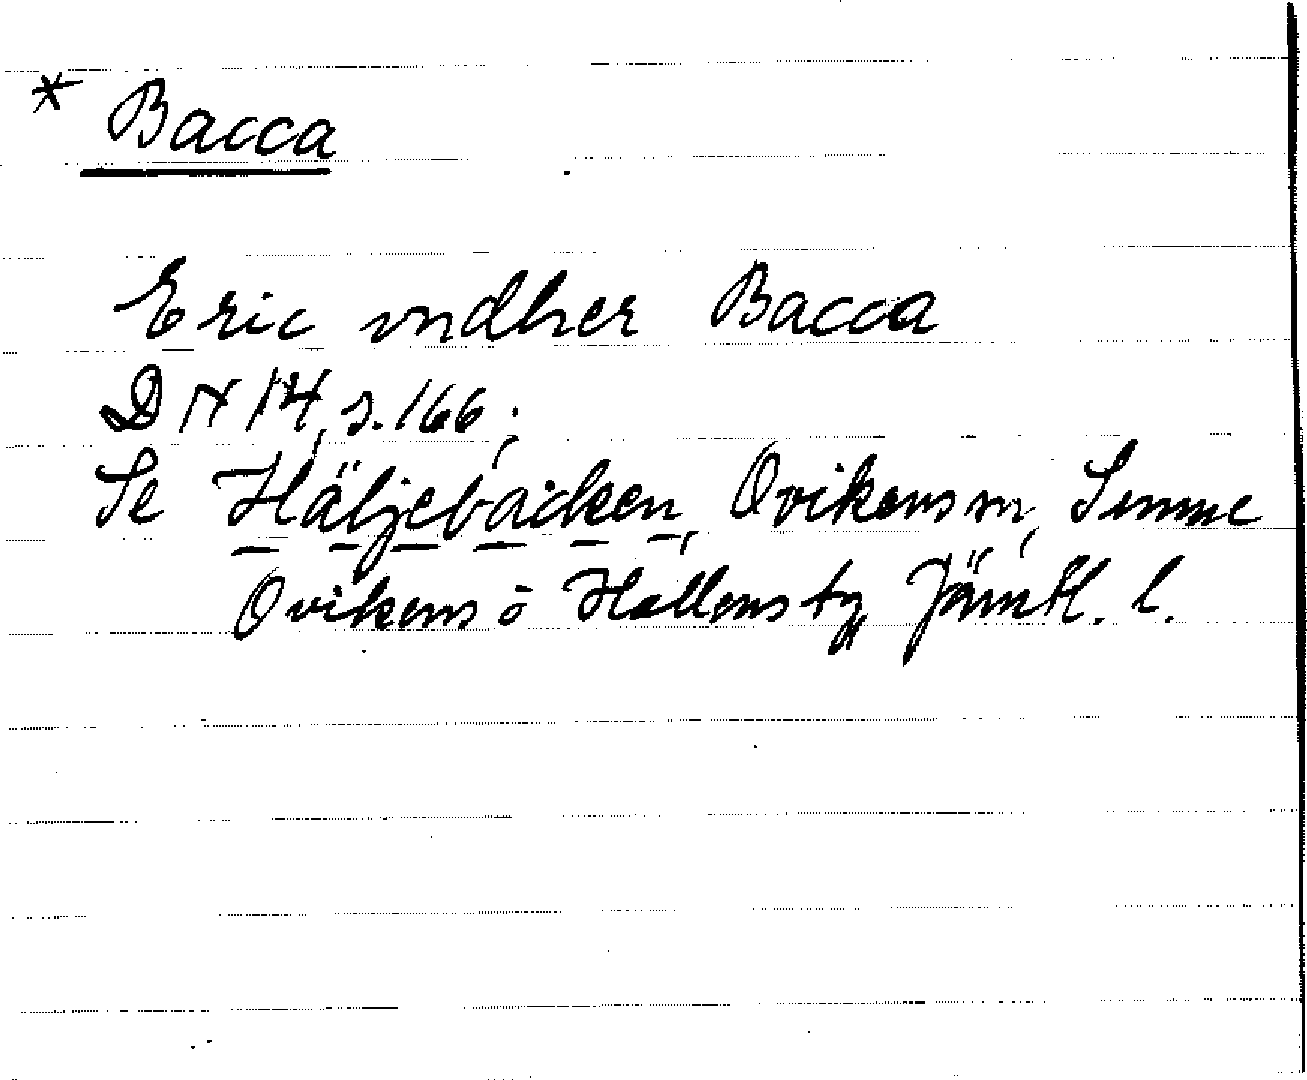 * Bacca
Eric vndher Bacca
DN 14, s. 166.
Se Häljebäcken, Ovikens sn, Sunne
Ovikens o Hallens tg, Jämtl. l.